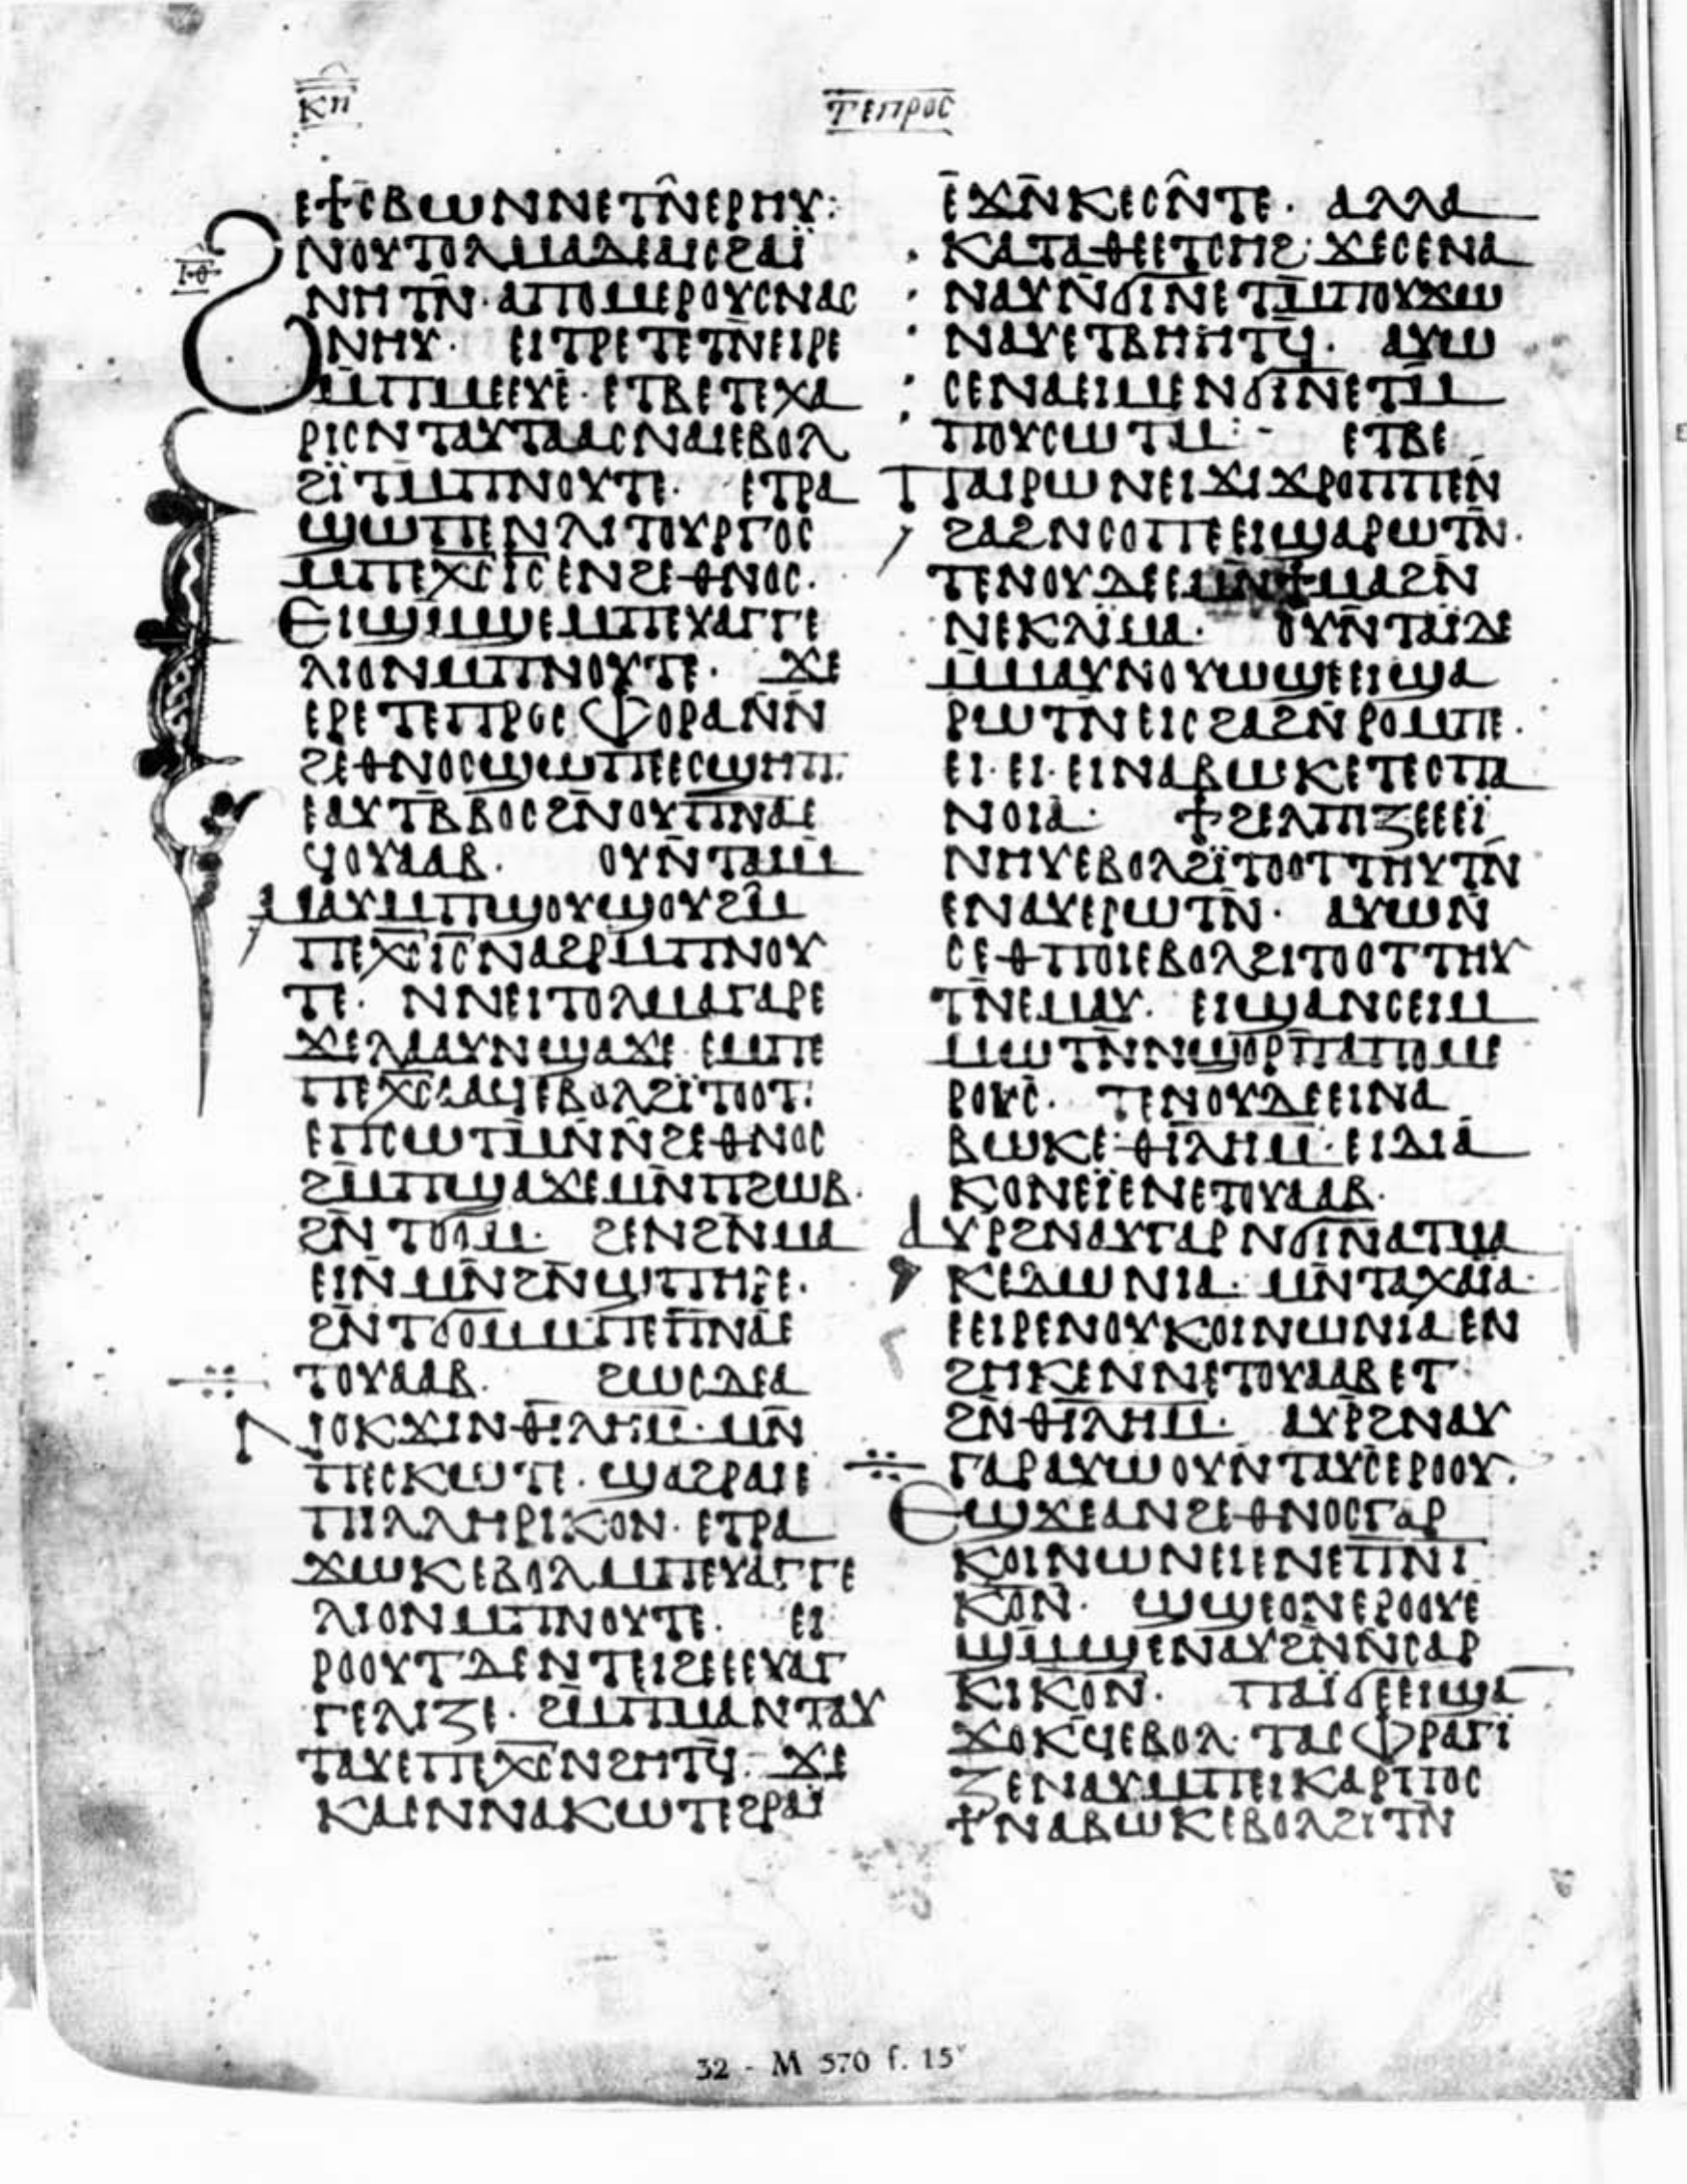 ⲕⲏ
ⲧⲉⲡⲣⲟⲥ
ⲉϯⲥⲃⲱⲛⲛⲉⲧⲛ̄ⲉⲣⲏⲩ:
ⲓⲑ
ϩⲛⲟⲩⲧⲟⲗⲙⲁⲇⲉⲁⲓⲥϩⲁⲓ̈
ⲛⲏⲧⲛ̄· ⲁⲡⲟⲙⲉⲣⲟⲩⲥⲛⲁⲥ
ⲛⲏⲩ· ⲉⲓⲧⲣⲉⲧⲉⲧⲛ̄ⲉⲓⲣⲉ
ⲙ̄ⲡⲙⲉⲉⲩⲉ· ⲉⲧⲃⲉⲧⲉⲭⲁ
ⲣⲓⲥⲛⲧⲁⲩⲧⲁⲁⲥⲛⲁⲓⲉⲃⲟⲗ
ϩⲓ̈ⲧⲙ̄ⲡⲛⲟⲩⲧⲉ· ⲉⲧⲣⲁ
ϣⲱⲡⲉⲛⲗⲓⲧⲟⲩⲣⲅⲟⲥ
ⲙⲡⲉⲭ̄ⲥ̄ⲓ̄ⲥ̄ⲉⲛϩⲉⲑⲛⲟⲥ·
ⲉⲓϣⲙ̄ϣⲉⲙⲡⲉⲩⲁⲅⲅⲉ
ⲗⲓⲟⲛⲙⲡⲛⲟⲩⲧⲉ· ϫⲉ
ⲉⲣⲉⲧⲉⲡⲣⲟⲥⲫⲟⲣⲁⲛ̄ⲛ̄
ϩⲉⲑⲛⲟⲥϣⲱⲡⲉⲉⲥϣⲏⲡ·
ⲉⲁⲩⲧⲃ̄ⲃⲟⲥϩⲛⲟⲩⲡ̄ⲛ̄ⲁⲉ
ϥⲟⲩⲁⲁⲃ· ⲟⲩⲛ̄ⲧⲁⲓ̈ⲙ
ⲙⲁⲩⲙⲡϣⲟⲩϣⲟⲩϩⲙ̄
ⲡⲉⲭ̄ⲥ̄ⲓ̄ⲥ̄ⲛⲁϩⲣⲙ̄ⲡⲛⲟⲩ
ⲧⲉ· ⲛⲛⲉⲓⲧⲟⲗⲙⲁⲅⲁⲣⲉ
ϫⲉⲗⲁⲁⲩⲛϣⲁϫⲉ ⲉⲙⲡⲉ
ⲡⲉⲭ̄ⲥ̄ⲁⲁϥⲉⲃⲟⲗϩⲓ̈ⲧⲟⲟⲧ:
ⲉⲡⲥⲱⲧⲙ̄ⲛ̄ⲛ̄ϩⲉⲑⲛⲟⲥ
ϩⲙ̄ⲡϣⲁϫⲉⲙⲛ̄ⲡϩⲱⲃ·
ϩⲛ̄ⲧϭⲟⲙ· ϩⲉⲛϩⲛ̄ⲙⲁ
ⲉⲓⲛ̄ⲙⲛ̄ϩⲛ̄ϣⲡⲏⲣⲉ·
ϩⲛ̄ⲧϭⲟⲙⲙ̄ⲡⲉⲡ̄ⲛ̄ⲁⲉ
ⲧⲟⲩⲁⲁⲃ· ϩⲱⲥⲇⲉⲁ
ⲛⲟⲕϫⲓⲛⲑⲓ̄ⲗ̄ⲏ̄ⲙ̄· ⲙⲛ̄
ⲡⲉⲥⲕⲱⲧⲉ· ϣⲁϩⲣⲁⲓⲉ
ⲡⲓⲗⲗⲏⲣⲓⲕⲟⲛ· ⲉⲧⲣⲁ
ϫⲱⲕⲉⲃⲟⲗⲙⲡⲉⲩⲁⲅⲅⲉ
ⲗⲓⲟⲛⲙⲡⲛⲟⲩⲧⲉ· ⲉⲓ
ⲣⲟⲟⲩⲧⲇⲉⲛⲧⲉⲓϩⲉⲉⲉⲩⲁⲅ
ⲅⲉⲗⲓⲍⲉ· ϩⲙ̄ⲡⲙⲁⲛⲧⲁⲩ
ⲧⲁⲩⲉⲡⲉⲭ̄ⲥ̄ⲛϩⲏⲧϥ̄· ϫⲉ
ⲕⲁⲉⲛⲛⲁⲕⲱⲧⲉϩⲣⲁⲓ̈
ⲉϫⲛ̄ⲕⲉⲥⲛ̄ⲧⲉ· ⲁⲗⲗⲁ
ⲕⲁⲧⲁⲑⲉⲉⲧⲥⲏϩ· ϫⲉⲥⲉⲛⲁ
ⲛⲁⲩⲛ̄ϭⲓⲛⲉⲧⲙ̄ⲡⲟⲩϫⲱ
ⲛⲁⲩⲉⲧⲃⲏⲏⲧϥ̄· ⲁⲩⲱ
ⲥⲉⲛⲁⲉⲓⲙⲉⲛϭⲓⲛⲉⲧⲙ̄
ⲡⲟⲩⲥⲱⲧⲙ:- ⲉⲧⲃⲉ
ⲡⲁⲓⲣⲱⲛⲉⲓϫⲓϫⲣⲟⲡⲡⲉⲛ̄
ϩⲁϩⲛⲥⲟⲡⲉⲉⲓϣⲁⲣⲱⲧⲛ̄·
ⲧⲉⲛⲟⲩⲇⲉⲉⲙⲛ̄ϯⲙⲁϩⲛ̄
ⲛⲉⲕⲗⲓ̈ⲙⲁ· ⲟⲩⲛ̄ⲧⲁⲓ̈ⲇⲉ
ⲙ̄ⲙⲁⲩⲛⲟⲩⲱϣⲉⲉⲓϣⲁ
ⲣⲱⲧⲛⲉⲓⲥϩⲁϩⲛ̄ⲣⲟⲙⲡⲉ·
ⲉⲓ·ⲉⲓ·ⲉⲓⲛⲁⲃⲱⲕⲉⲧⲉⲥⲡⲁ
ⲛⲟⲓⲁ· ϯϩⲉⲗⲡⲓⲍⲉⲉⲉⲓ̈
ⲛⲏⲩⲉⲃⲟⲗϩⲓ̈ⲧⲟⲟⲧⲧⲏⲩⲧⲛ̄
ⲉⲛⲁⲩⲉⲣⲱⲧⲛ̄· ⲁⲩⲱⲛ̄
ⲥⲉⲑⲡⲟⲓⲉⲃⲟⲗϩⲓⲧⲟⲟⲧⲧⲏⲩ
ⲧⲛ̄ⲉⲙⲁⲩ· ⲉⲓϣⲁⲛⲥⲉⲓⲙ
ⲙⲱⲧⲛ̄ⲛϣⲟⲣⲡ̄ⲁⲡⲟⲙⲉ
ⲣⲟⲩⲥ· ⲧⲉⲛⲟⲩⲇⲉⲉⲓⲛⲁ
ⲃⲱⲕⲉ·ⲑⲓ̄ⲗ̄ⲏ̄ⲙ̄·ⲉⲓⲇⲓⲁ
ⲕⲟⲛⲉⲓ̈ⲉⲛⲉⲧⲟⲩⲁⲁⲃ·
ⲁⲩⲣϩⲛⲁⲩⲅⲁⲣⲛϭⲓⲛⲁⲧⲙⲁ
ⲕⲉⲇⲱⲛⲓⲁ· ⲙⲛ̄ⲧⲁⲭⲁⲓ̈ⲁ·
ⲉⲉⲓⲣⲉⲛⲟⲩⲕⲟⲓⲛⲱⲛⲓⲁⲉⲛ
ϩⲏⲕⲉⲛⲛⲉⲧⲟⲩⲁⲁⲃⲉⲧ
ϩⲛ̄ⲑⲓ̄ⲗ̄ⲏ̄ⲙ̄· ⲁⲩⲣϩⲛⲁⲩ
ⲅⲁⲣⲁⲩⲱⲟⲩⲛⲧⲁⲩⲥⲉⲣⲟⲟⲩ·
ⲉϣϫⲉⲁⲛϩⲉⲑⲛⲟⲥⲅⲁⲣ
ⲕⲟⲓⲛⲱⲛⲉⲓⲉⲛⲉⲡ̄ⲛ̄ⲓ̄
ⲕⲟⲛ· ϣϣⲉⲟⲛⲉⲣⲟⲟⲩⲉ
ϣⲙ̄ϣⲉⲛⲁⲩϩⲛ̄ⲛ̄ⲥⲁⲣ
ⲕⲓⲕⲟⲛ· ⲡⲁⲓ̈ϭⲉⲉⲓϣⲁ
ϫⲟⲕϥⲉⲃⲟⲗ·ⲧⲁⲥⲫⲣⲁⲅⲓ̈
ⲍⲉⲛⲁⲩⲙⲡⲉⲓⲕⲁⲣⲡⲟⲥ
ϯⲛⲁⲃⲱⲕⲉⲃⲟⲗϩⲓⲧⲛ̄
32 - M 570 f. 15ᵛ